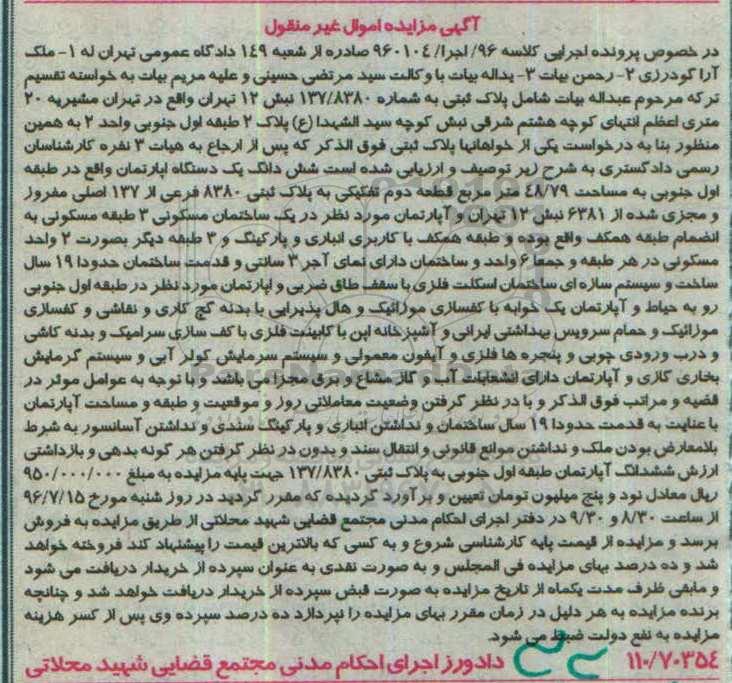 آگهی مزایده اموال غیر منقول
در خصوص پرونده اجرایی کلاسه ۹۶/ اجرا/ ۹۶۰۱۰۴ صادره از شعبه ۱۴۹ دادگاه عمومی تهران له ۱- ملک
آرا گودرزی ۲- رحمن بیات ۳- یداله بیات با وکالت سید مرتضی حسینی و علیه مریم بیات به خواسته تقسیم
ترکه مرحوم عبداله بیات شامل پلاک ثبتی به شماره ۱۳۷/۸۳۸۰ نبش ۱۲ تهران واقع در تهران مشیریه ۲۰
متری اعظم انتهای کوچه هشتم شرقی نبش کوچه سید الشهدا (ع) پلاک ۲ طبقه اول جنوبی واحد ۲ به همین
منظور بنا به درخواست یکی از خواهانها پلاک ثبتی فوق الذکر که پس از ارجاع به هیات ۳ نفره کارشناسان
رسمی دادگستری به شرح زیر توصیف و ارزیابی شده است شش دانگ یک دستگاه اپارتمان واقع در طبقه
اول جنوبی به مساحت ۴۸/۷۹ متر مربع قطعه دوم تفکیکی به پلاک ثبتی ۸۳۸۰ فرعی از ۱۳۷ اصلی مفروز
و مجزی شده از ۶۳۸۱ نبش ۱۲ تهران و آپارتمان مورد نظر در یک ساختمان مسکونی ۳ طبقه مسکونی به
انضمام طبقه همکف واقع بوده و طبقه همکف با کاربری انباری و پارکینگ و ۳ طبقه دیگر بصورت ۲ واحد
مسکونی در هر طبقه و جمعا ۶ واحد و ساختمان دارای نمای آجر ۳ سانتی و قدمت ساختمان حدودا ۱۹ سال
ساخت و سیستم سازه ای ساختمان اسکلت فلزی با سقف طاق ضربی و اپارتمان مورد نظر در طبقه اول جنوبی
رو به حیاط و آپارتمان یک خوابه با کفسازی موزائیک و هال پذیرایی با بدنه گچ کاری و نقاشی و کفسازی
موزائیک و حمام سرویس بهداشتی ایرانی و آشپزخانه اپن با کابینت فلزی با کف سازی سرامیک و بدنه کاشی
و درب ورودی چوبی و پنجره ها فلزی و آیفون معمولی و سیستم سرمایش کولر آبی و سیستم گرمایش
بخاری گازی و آپارتمان دارای انشعابات آب و گاز مشاع و برق مجزا می باشد و با توجه به عوامل موثر در
قضیه و مراتب فوق الذکر و با در نظر گرفتن وضعیت معاملاتی روز و موقعیت و طبقه و مساحت آپارتمان
با عنایت به قدمت حدودا ۱۹ سال ساختمان و نداشتن انباری و پارکینگ سندی و نداشتن آسانسور به شرط
بلامعارض بودن ملک و نداشتن موانع قانونی و انتقال سند و بدون در نظر گرفتن هر گونه بدهی و بازداشتی
ارزش ششدانگ آپارتمان طبقه اول جنوبی به پلاک ثبتی ۱۳۷/۸۳۸۰ جهت پایه مزایده به مبلغ ۹۵۰/۰۰۰/۰۰۰
ریال معادل نود و پنج میلیون تومان تعیین و برآورد گردیده که مقرر گردید در روز شنبه مورخ ۹۶/۷/۱۵
از ساعت ۸/۳۰ و ۹/۳۰ در دفتر اجرای احکام مدنی مجتمع قضایی شهید محلاتی از طریق مزایده به فروش
برسد و مزایده از قیمت پایه کارشناسی شروع و به کسی که بالاترین قیمت را پیشنهاد کند فروخته خواهد
شد و ده درصد بهای مزایده فی المجلس و به صورت نقدی به عنوان سپرده از خریدار دریافت می شود
و مابقی ظرف مدت یکماه از تاریخ مزایده به صورت قبض سپرده از خریدار دریافت خواهد شد و چنانچه
برنده مزایده به هر دلیل در زمان مقرر بهای مزایده را نپردازد ده درصد سپرده وی پس از کسر هزینه
مزایده به نفع دولت ضبط می شود.
۱۱۰/۷۰۳۵۴ دادورز اجرای احکام مدنی مجتمع قضایی شهید محلاتی